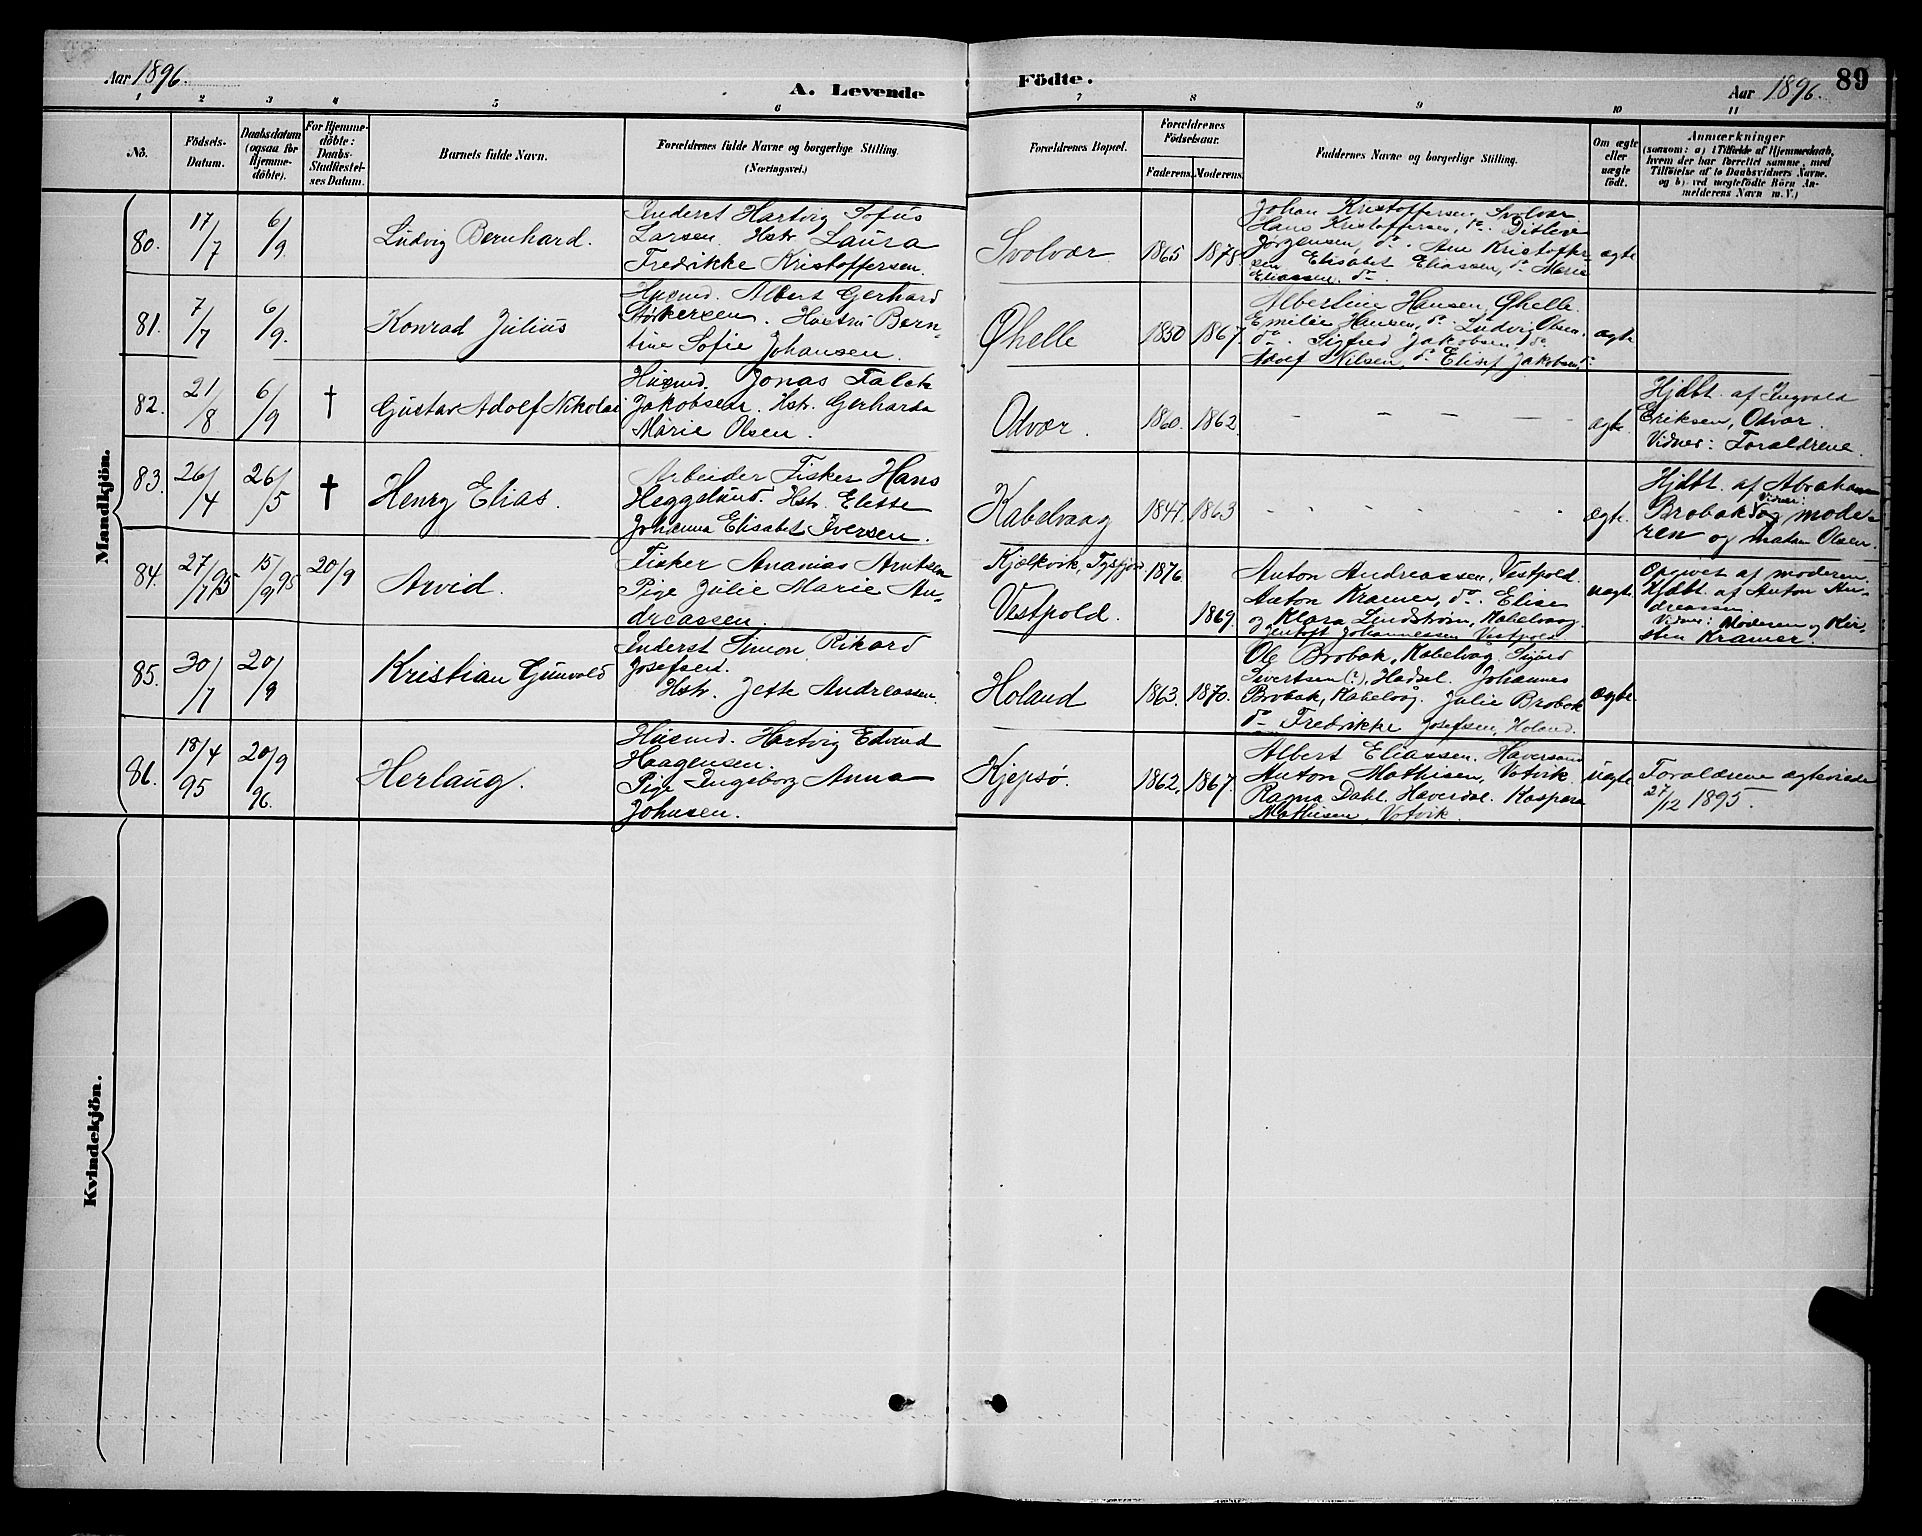 Aar 1896.
A. Levende
Födte.
Aar 1896.
89
1 2 3 4 5 6 7 8 9 10 11
No.
Födsels-
Datum.
Daabsdatum
(ogsaa for
Hjemme-
döbte).
For Hjemme-
döbte:
Daabs-
Stadfæstel-
ses Datum.
Barnets fulde Navn.
Forældrenes fulde Navne og borgerlige Stilling.
(Næringsvei.)
Forældrenes Bopæl.
Forældrenes
Födselsaar.
Faderens. Moderens.
Faddernes Navne og borgerlige Stilling.
Om ægte
eller
uægte
födt.
Anmærkninger
(saasom: a) i Tilfælde af Hjemmedaab,
hvem der har forrettet samme, med
Tilföielse af to Daabsvidners Navne.
og b) ved uægtefödte Börn An-
melderens Navn m. V.)
Mandkjön.
80. 17/7 6/9. Ludvig Bernhard.
Inderst Hartvig Sofus
Larsen. Hstr. Laura
Fredrikke Kristoffersen.
Svolvær 1865 1878
Johan Kristoffersen, Svolvær
Hans Kristoffersen, do. Ditlevi
Jørgensen, do. Ane Kristoffer-
sen Elisabet Eliassen, do Marie
Eliassen. do
ægte
81. 7/7 6/9. Konrad Julius
Husmd. Albert Gerhard
Størkersen. Hustru Bern-
tine Sofie Johansen.
Øhelle 1850 1867.
Albertine Hansen, Øhelle.
Emilie Hansen, do. Ludvig Olsen.
do. Sigfred Jakobsen, do
Adolf Nilsen, do Elisef Jakobsen, do
ægte
82. 21/8 6/9 † Gustav Adolf Nikolai
Husmd. Jonas Falck
Jakobsen. Hstr. Gerharda
Marie Olsen.
Odvær. 1860. 1862. - - - - -
ægte
Hjdbt. af Ingvald
Eriksen, Odvær.
Vidner: Forældrene.
83. 26/4 26/5 † Henry Elias.
Arbeider Fisker Hans
Heggelund. Hstr. Elesse
Johanna Elisabet Iversen.
Kabelvaag 1847. 1863 - - - - -
ægte.
Hjdbt. af Abraham
Vidner:
Brobak, og mode-
ren og madam Olsen.
84. 27/7 95 15/9 95 20/9 Arvid.
Fisker Ananias Arntsen
Pige Julie Marie An-
dreassen.
Kjølkvik, Tysfjor. 1876.
Vestpold. 1869.
Anton Andreassen, Vestpold.
Anton Kramer, do. Elise
og Klara Lindstrøm, Kabelvaag.
Johannessen Vestpold
uægte.
Opgivet af moderen.
Hjdbt. af Anton An-
dreassen.
Vidner: Moderen og Kir-
stin Kramer.
85. 30/7 20/9 Kristian Gunvald
Inderst Simon Rikard
Josefsen.
Hstr. Jette Andreassen.
Holand 1863. 1870.
Ole Brobak, Kabelvåg. Sigurd
Sivertsen (?), Hadsel. Johannes
Brobak, Kabelvåg. Julie Brobak
do Fredrikke Josefsen, Holand.
ægte.
86. 18/4 95 20/9 96. Herlaug.
Husmd. Hartvig Edvard
Haagensen.
Pige Ingeborg Anna
Johnsen.
Kjepsø. 1862. 1867.
Albert Eliassen. Haversand
Anton Mathisen, Votvik.
Ragna Dahl. Haverdal. Kaspara
Mathisen, Votvik.
uægte
Forældrene ægteviede
27/12 1895.
Kvindekjön.